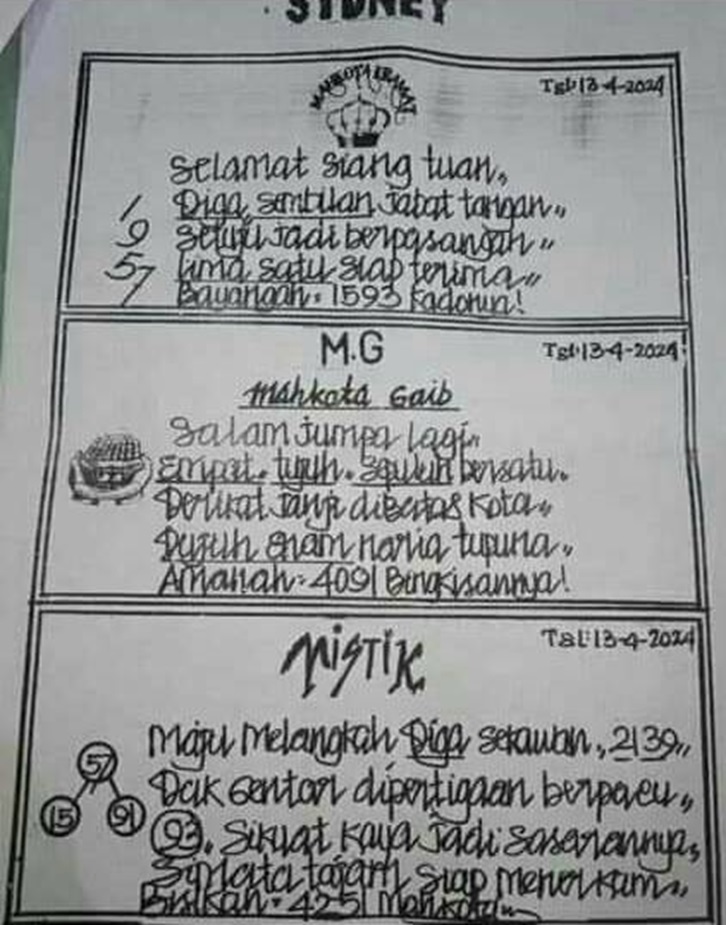 SYDNEY
MAHKOTA KRAMAT
Tgl:13-4-2024
Selamat siang tuan,,
Diga, sembilan jabat tangan,,
Setuju jadi berpasangan,,
lima satu siap terima,,
Bayangan = 1593 Kadonya!
1
9
57
1
M.G
Tgl:13-4-2024
Mahkota Gaib
Salam jumpa lagi,,
Empat. tujuh. sepuluh bersatu.
Derikat janji dibatas kota,,
Dujuh enam,,
Amanah = 4091 Bingkisannya!
MISTIK
Tgl:13-4-2024
Maju Melangkah Diga sekawan, 2139,,
Dak gentar dipertigaan berpacu,,
93. Sikuat kaya jadi sasarannya,
Simata tajam siap menerkam,,
4251 Mahkota
57
15
91